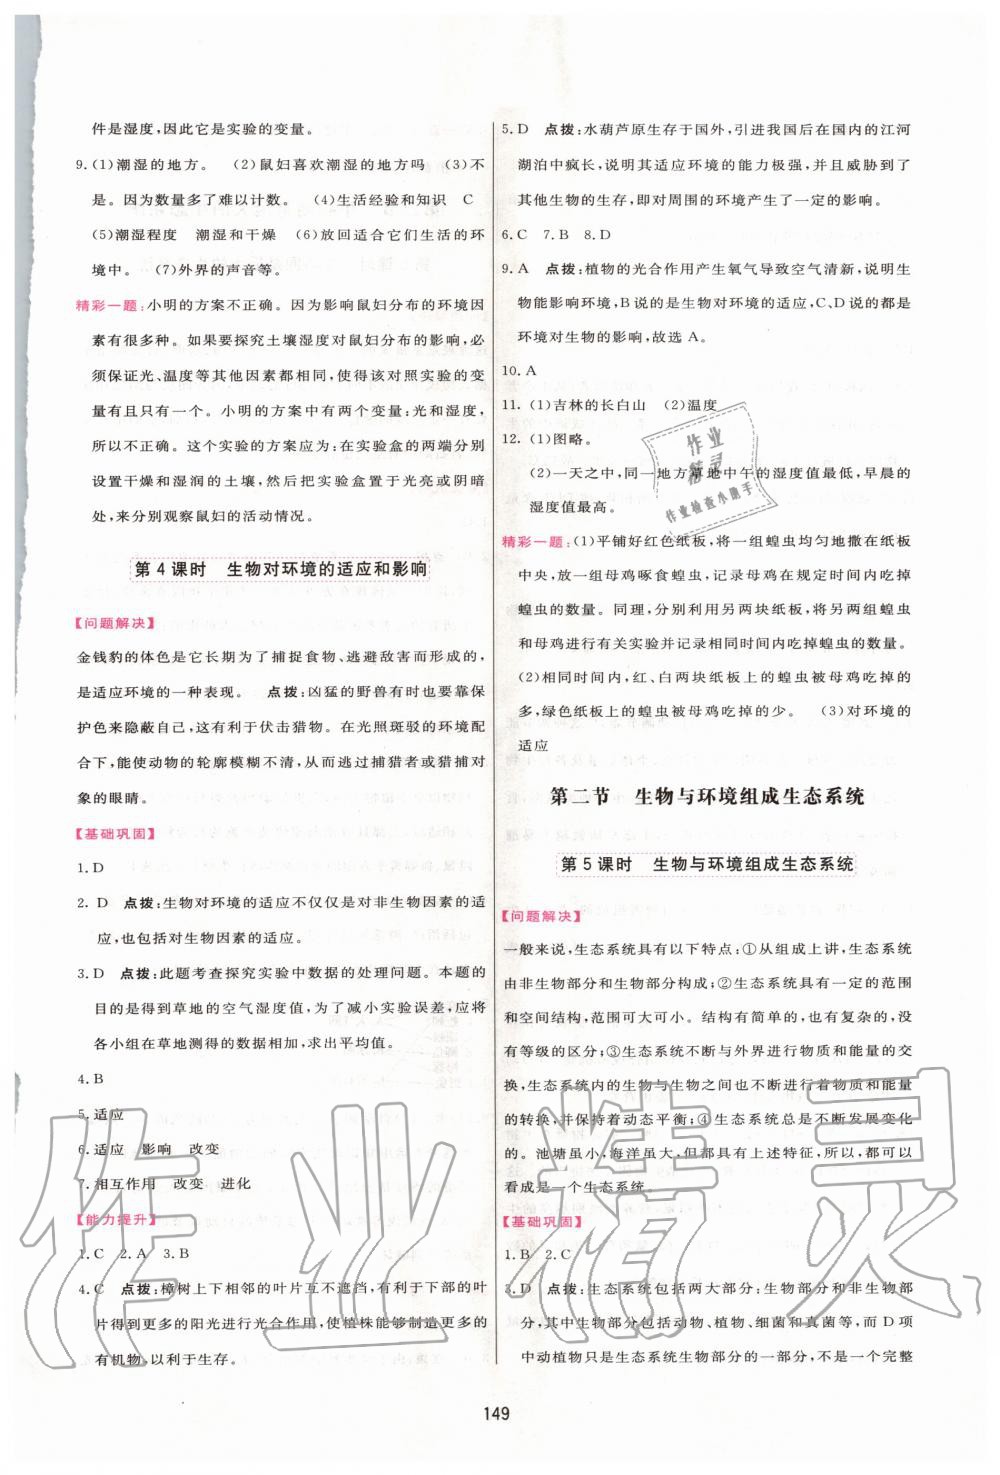 件是湿度,因此它是实验的变量。
9.(1)潮湿的地方。 (2)鼠妇喜欢潮湿的地方吗 (3)不
是。因为数量多了难以计数。 (4)生活经验和知识 C
(5)潮湿程度 潮湿和干燥 (6)放回适合它们生活的环
境中。 (7)外界的声音等。
精彩一题:小明的方案不正确。因为影响鼠妇分布的环境因
素有很多种。如果要探究土壤湿度对鼠妇分布的影响,必
须保证光、温度等其他因素都相同,使得该对照实验的变
量有且只有一个。小明的方案中有两个变量:光和湿度,
所以不正确。这个实验的方案应为:在实验盒的两端分别
设置干燥和湿润的土壤,然后把实验盒置于光亮或阴暗
处,来分别观察鼠妇的活动情况。
第4课时 生物对环境的适应和影响
【问题解决】
金钱豹的体色是它长期为了捕捉食物、逃避敌害而形成的,
是适应环境的一种表现。 点拨:凶猛的野兽有时也要靠保
护色来隐蔽自己,这有利于伏击猎物。在光照斑驳的环境配
合下,能使动物的轮廓模糊不清,从而逃过捕猎者或猎捕对
象的眼睛。
【基础巩固】
1.D
2.D 点拨:生物对环境的适应不仅仅是对非生物因素的适
应,也包括对生物因素的适应。
3.D 点拨:此题考查探究实验中数据的处理问题。本题的
目的是得到草地的空气湿度值,为了减小实验误差,应将
各小组在草地测得的数据相加,求出平均值。
4.B
5.适应
6.适应 影响 改变
7.相互作用 改变 进化
【能力提升】
1.C 2.A 3.B
4.C 点拨:樟树上下相邻的叶片互不遮挡,有利于下部的叶
片得到更多的阳光进行光合作用,使植株能够制造更多的
有机物,以利于生存。
5.D 点拨:水葫芦原生存于国外,引进我国后在国内的江河
湖泊中疯长,说明其适应环境的能力极强,并且威胁到了
其他生物的生存,即对周围的环境产生了一定的影响。
6.C 7.B 8.D
9.A 点拨:植物的光合作用产生氧气导致空气清新,说明生
物能影响环境,B说的是生物对环境的适应,C、D说的都是
环境对生物的影响,故选 A。
10.A
11.(1)吉林的长白山 (2)温度
12.(1)图略。
(2)一天之中,同一地方草地中午的湿度值最低,早晨的
湿度值最高。
精彩一题:(1)平铺好红色纸板,将一组蝗虫均匀地撒在纸板
中央,放一组母鸡啄食蝗虫,记录母鸡在规定时间内吃掉
蝗虫的数量。同理,分别利用另两块纸板,将另两组蝗虫
和母鸡进行有关实验并记录相同时间内吃掉蝗虫的数量。
(2)相同时间内,红、白两块纸板上的蝗虫被母鸡吃掉的
多,绿色纸板上的蝗虫被母鸡吃掉的少。 (3)对环境的
适应
第二节 生物与环境组成生态系统
第5课时 生物与环境组成生态系统
【问题解决】
一般来说,生态系统具有以下特点:①从组成上讲,生态系统
由非生物部分和生物部分构成;②生态系统具有一定的范围
和空间结构,范围可大可小。结构有简单的,也有复杂的,没
有等级的区分;③生态系统不断与外界进行物质和能量的交
换,生态系统内的生物与生物之间也不断进行着物质和能量
的转换,并保持着动态平衡;④生态系统总是不断发展变化
的。池塘虽小,海洋虽大,但都具有上述特征,所以,都可以
看成是一个生态系统。
【基础巩固】
1.B 2.C
3.D 点拨:生态系统包括两大部分:生物部分和非生物部
分,其中生物部分包括动物、植物、细菌和真菌等,而 D 项
中动植物只是生态系统生物部分的一部分,不是一个完整
149
作业
精灵
作业检查小助手
作业精灵